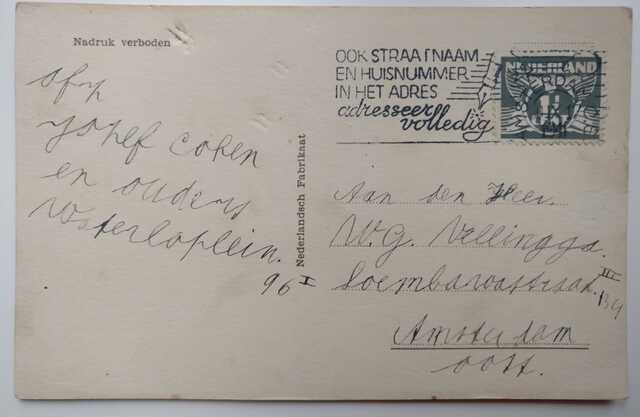 Nadruk verboden
afz
Josef Cohen
en ouders
Waterlooplein.
96 I
Nederlandsch Fabrikaat
OOK STRAATNAAM
EN HUISNUMMER
IN HET ADRES
adresseer
volledig
NEDERLAND
1½
Aan den Heer.
W.G. Vellingga.
Soembawastraat. III
Amsterdam
oost.